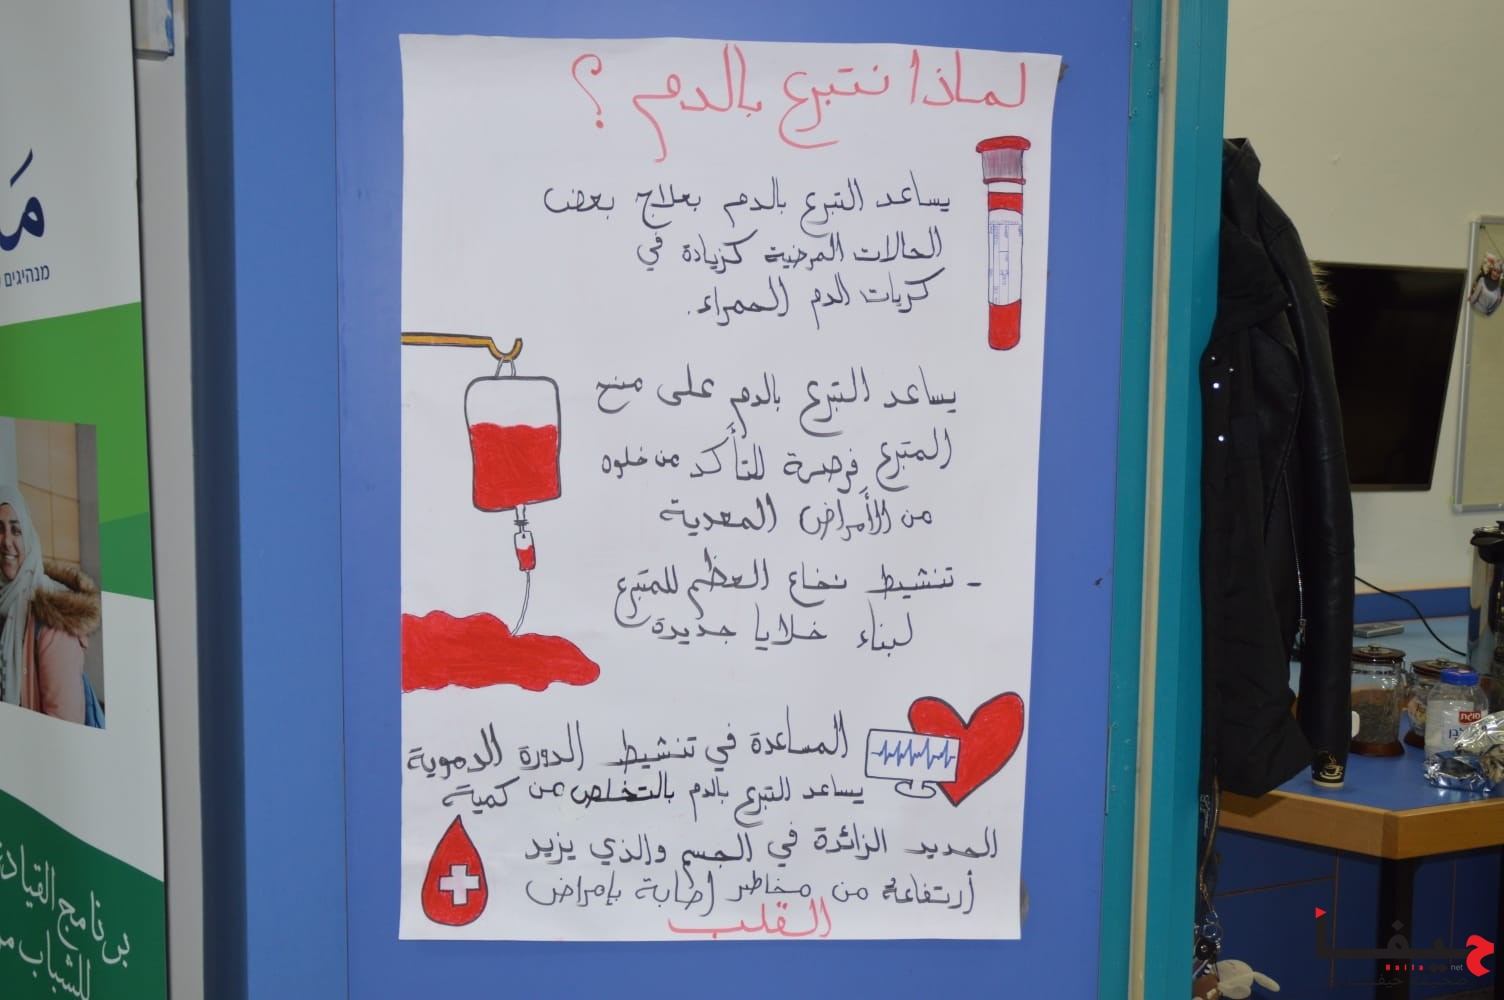 لماذا نتبرع بالدم ؟
يساعد التبرع بالدم بعلاج بعض
الحالات المرضية كزيادة في
كريات الدم الحمراء.
يساعد التبرع بالدم على منح
المتبرع فرصة للتأكد من خلوه
من الأمراض المعدية
- تنشيط نخاع العظم للمتبرع
لبناء خلايا جديدة
المساعدة في تنشيط الدورة الدموية
يساعد التبرع بالدم بالتخلص من كمية
الحديد الزائدة في الجسم والذي يزيد
أرتفاعه من مخاطر إصابة بإمراض
القلب
מנהיגים
برنامج القيادة
للشباب
حيفا
Haifa net